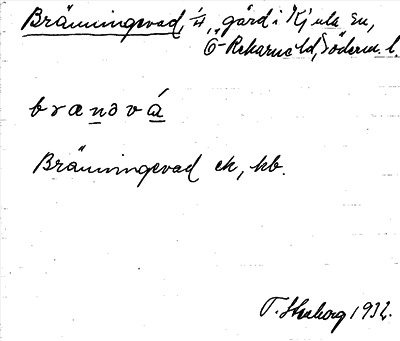 Bränningevad, 1/4, gård i Kjula sn,
Ö-Rekarne hd, Söderm. l.
brænɔvá
Bränningevad ek, kb.
T. 1932.